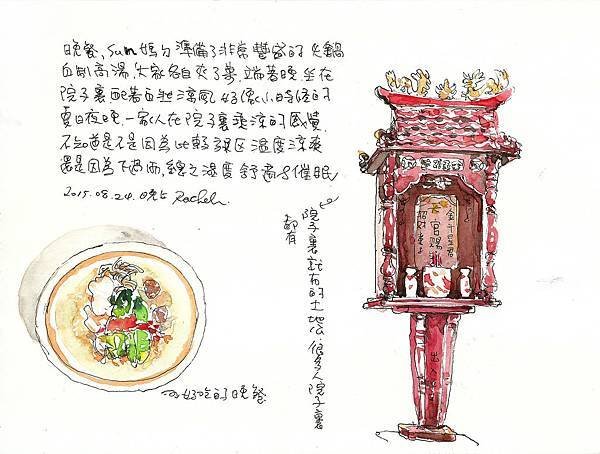 晚餐, Sum 媽為準備了非常豐富的火鍋
自制高湯, 大家各自夾了菜, 端著碗坐在
院子裏配著自然涼風 好像小時侯的
夏日夜晚, 一家人在院子裏乘涼的感覺.
不知道是不是因為比較郊区温度涼爽
還是因為下過雨, 總之溫度舒適的催眠
2015.08.24. 晚上 Rachel
好吃的晚餐
院子裏就有的土地公 很多人院子裏
都有
天官賜
招財童子